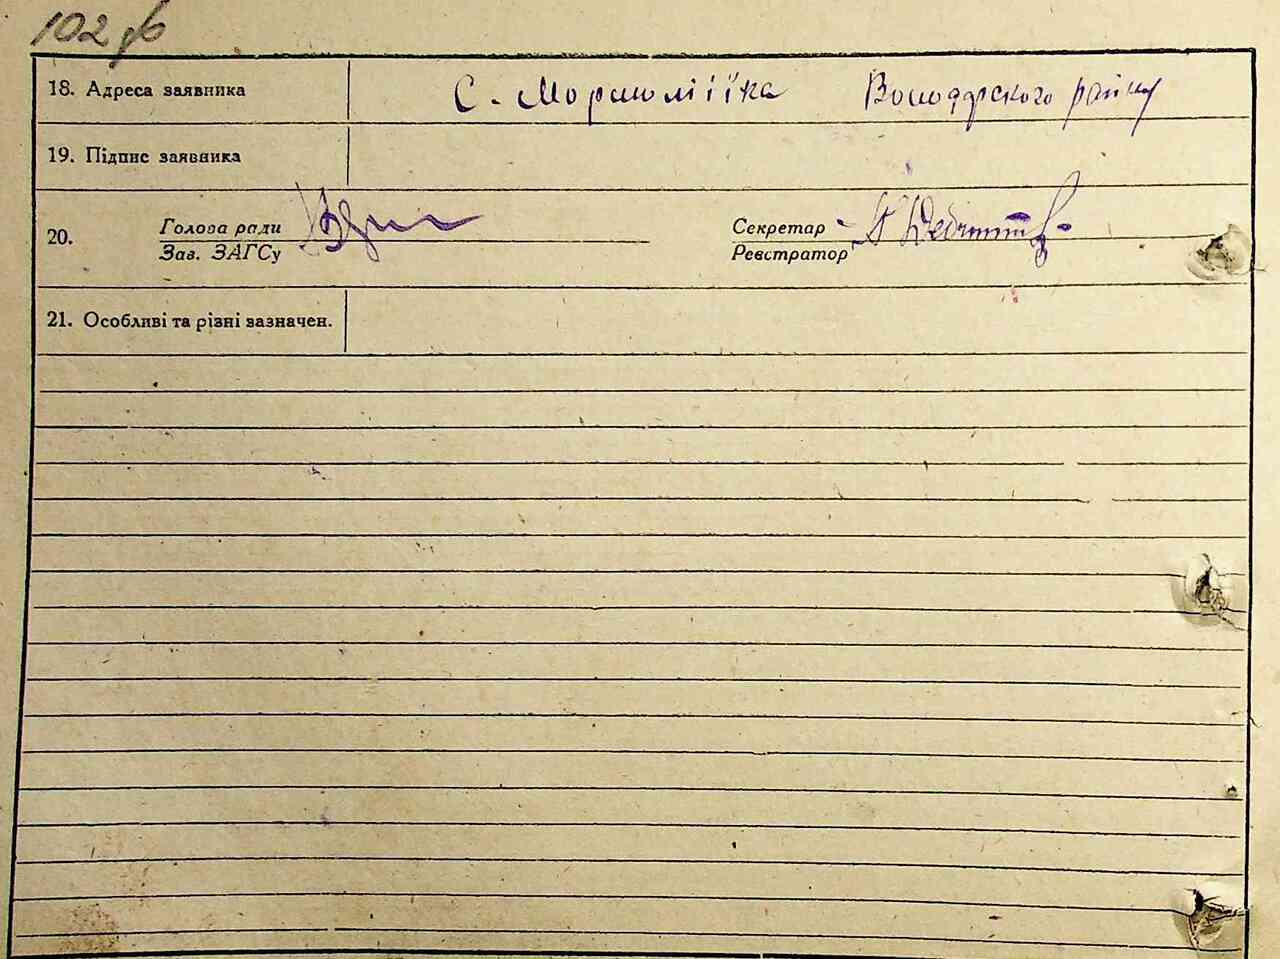 102
18. Адреса заявника С. Мормоліївка Володарского району
19. Підпис заявника
20. Голова ради Секретар
Зав. ЗАГСу Реєстратор
21. Особливі та різні зазначен.